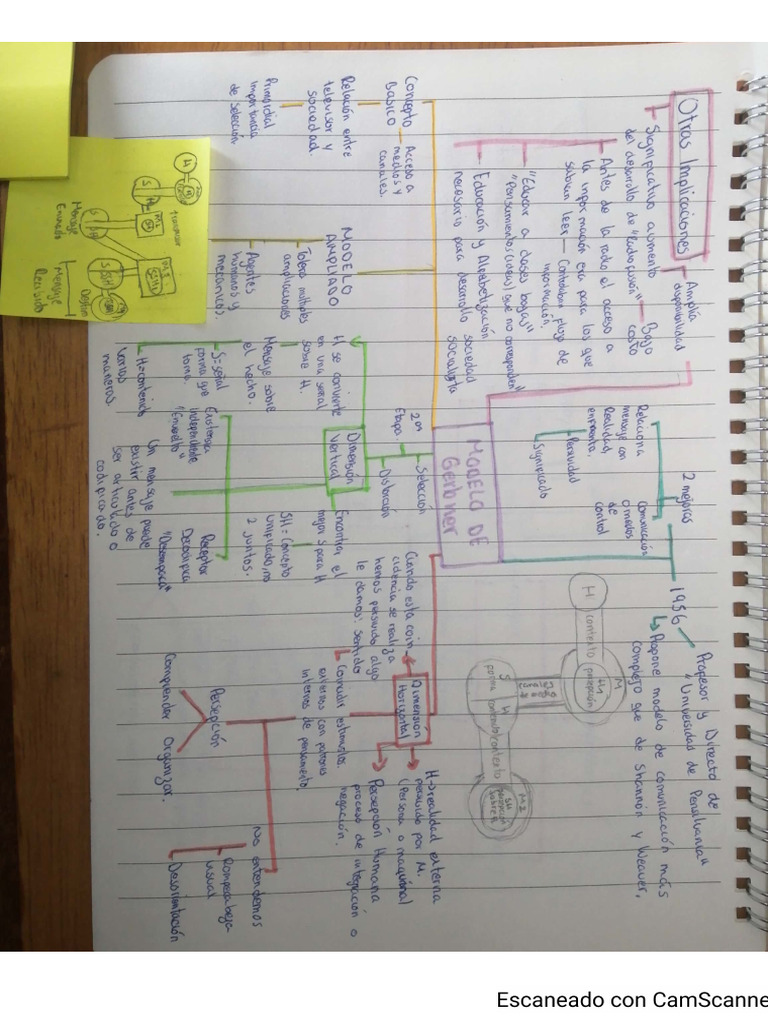 MODELO DE
Gerbner
1956
Profesor y Directo de
"Universidad de Pensilvania"
Propone modelo de comunicación más
complejo que de Shannon y Weaver.
2 mejoras
Relaciona
mensaje con
Realidad
enfrenta.
Percividad
Significado
Comunicación
o medios
de
control
Otras Implicaciones
Amplia
disponibilidad
Bajo
costo
Significativo aumento
del desarrollo de "Radiofusión"
Antes de la radio el acceso a
la información era para los que
sabian leer — Controlaban flujo de
información.
"Educar a clases bajas"
"Pensamientos (ideas) que no corresponden"
Educación y Alfabetización
necesario para desarrollo
sociedad
socialista
MODELO
AMPLIADO
Concepto
Basico
Acceso a
medios y
canales.
Relación entre
televisor y
sociedad.
Primordial
importancia
de selección
Tolera multiples
ampliaciones
Agentes
humanos y
mecanicos.
H
M
S
H
M1
SH
M2
S SH
transmisor
Mensaje
Enviado
Mensaje
Recibido
Destino
2da
Etapa.
Selección
Distorción
Dimensión
Vertical
H se convierte
en una señal
sobre H.
Mensaje sobre
el hecho.
S= señal
forma que
toma.
H=contenido
Varias
maneras.
Encontrar el
mejor S para H
SH = Concepto
unificado, no
2 juntos.
Existencia
Independiente
"Envuelto"
Un mensaje puede
existir antes de
ser articulado o
codificado.
Receptor
Decodifica
"Desempaca"
Dimensión
Horizontal
H→realidad externa
percivido por M.
(Persona o maquina)
Persepción Humana
proceso de integración o
negación.
Cuando esta coin-
cidencia se realiza
hemos percivido algo
le damos: sentido
Coincidir estimulos
externos con patrones
internos de pensamiento.
Persepción
Comprender
Organizar.
No entendemos
Rompecabeza
visual
Desorientación
H
contexto
percepción
H1
M
canales
de medio
S
H
forma
contenido
contexto
percepción
SH
sobre H
M2
Escaneado con CamScanne